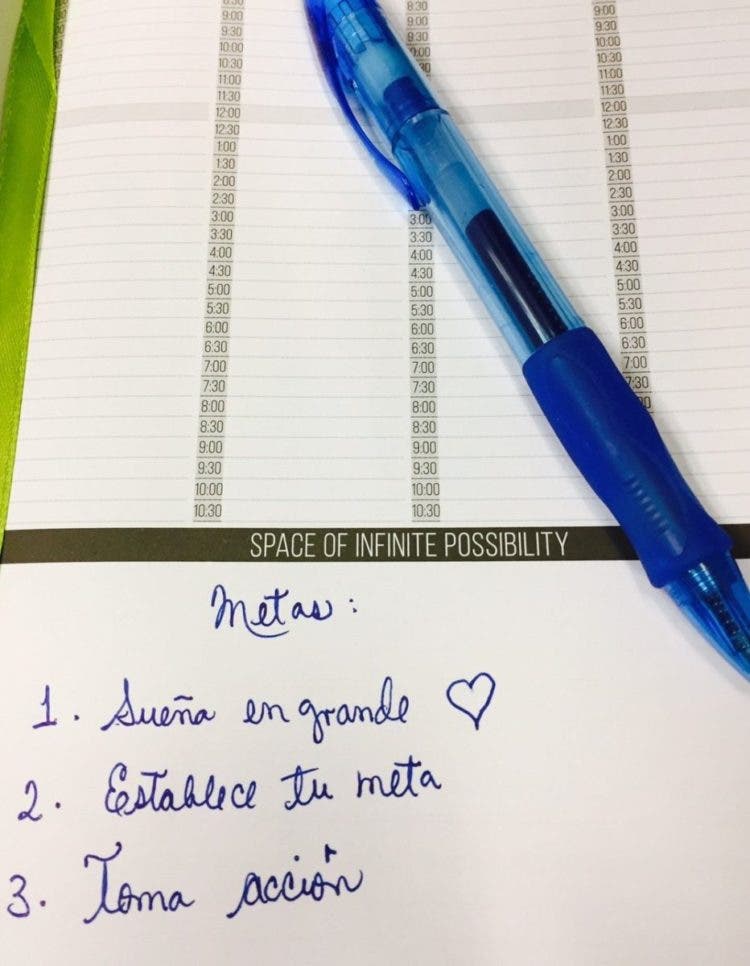 9:00
9:30
10:00
10:30
11:00
11:30
12:00
12:30
1:00
1:30
2:00
2:30
3:00
3:30
4:00
4:30
5:00
5:30
6:00
6:30
7:00
7:30
8:00
8:30
9:00
9:30
10:00
10:30
8:30
9:00
9:30
3:00
3:30
4:00
4:30
5:00
5:30
6:00
6:30
7:00
7:30
8:00
8:30
9:00
9:30
10:00
10:30
9:00
9:30
10:00
10:30
11:00
11:30
12:00
12:30
1:00
1:30
2:00
2:30
3:00
3:30
4:00
4:30
5:00
5:30
6:00
6:30
7:00
7:30
SPACE OF INFINITE POSSIBILITY
Metas:
1. Sueña en grande ♡
2. Establece tu meta
3. Toma acción